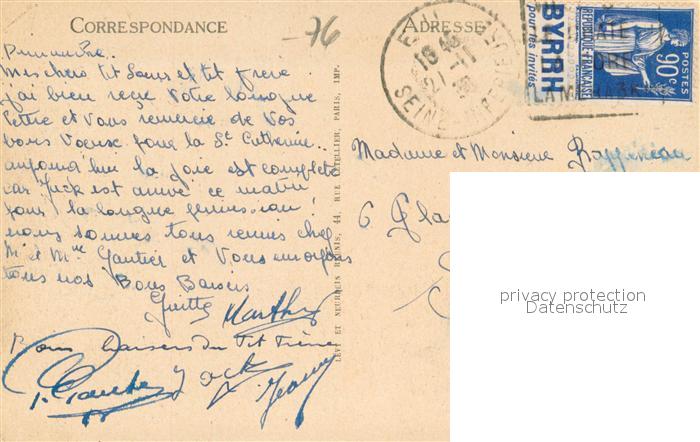 CORRESPONDANCE
ADRESSE
-76
Dimanche.
Mes chers tit Sœurs et tit frère
j'ai bien reçu Votre longue
lettre et Vous remercie de Vos
bons Vœux pour la St Catherine.
aujourd'hui la joie est complète
car Jack est arrivé ce matin
pour la longue permission!
nous sommes tous réunis chez
Mr et Mme Gautier et Vous envoyons
tous nos Bons Baisers
Ginette Marthe
Bons baisers du Tit Frère
Jack
LÉVY ET NEURDEIN RÉUNIS, 44, RUE LETELLIER, PARIS, IMP.
18 45
21-11
SEINE
BYRRH
pour tes invités
REPUBLIQUE FRANÇAISE
POSTES
90c
Madame et Monsieur
6 Pla
privacy protection
Datenschutz